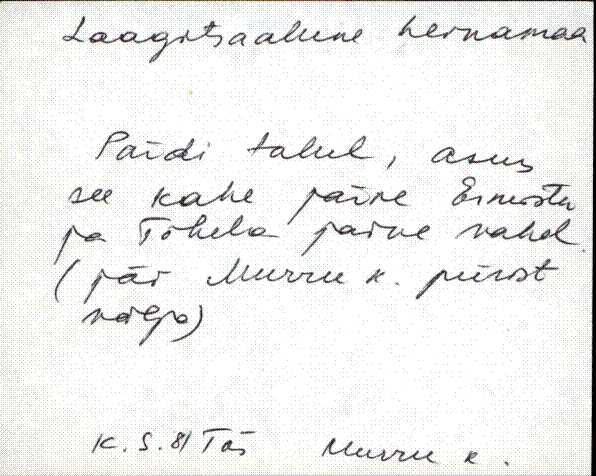 Laagritsaalune heinamaa
Paidi talul, asus
see kahe järve Ermistu
ja Tõhela järve vahel.
(jäi Murru k. piirist
välja)
K.S. 81 Tõs Murru k.